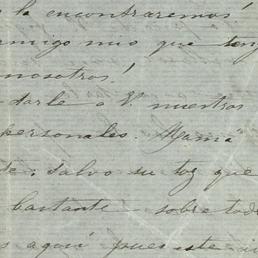 la encontraremos
amigo mio que ten
nosotros!
darle a V. nuestros
personales. Mamá
de, salvo su toz que
bastante sobre tod
aquí pues este